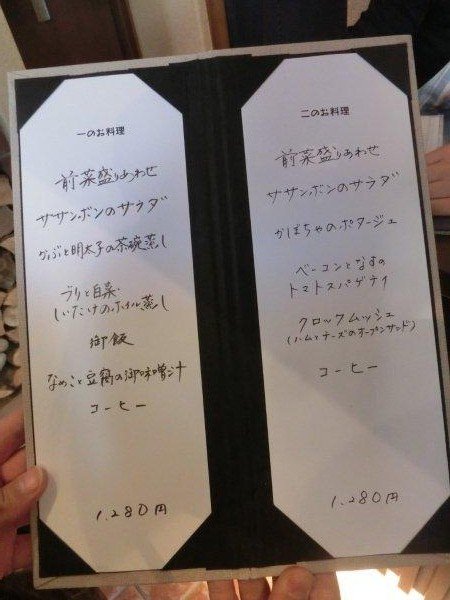 一のお料理
前菜盛りあわせ
ササンボンのサラダ
かぶと明太子の茶碗蒸し
ブリと白菜・
しいたけのホイル蒸し
御飯
なめこと豆腐の御味噌汁
コーヒー
1,280円
二のお料理
前菜盛りあわせ
ササンボンのサラダ
かぼちゃのポタージュ
ベーコンとなすの
トマトスパゲティ
クロックムッシュ
(ハムとチーズのオープンサンド)
コーヒー
1,280円